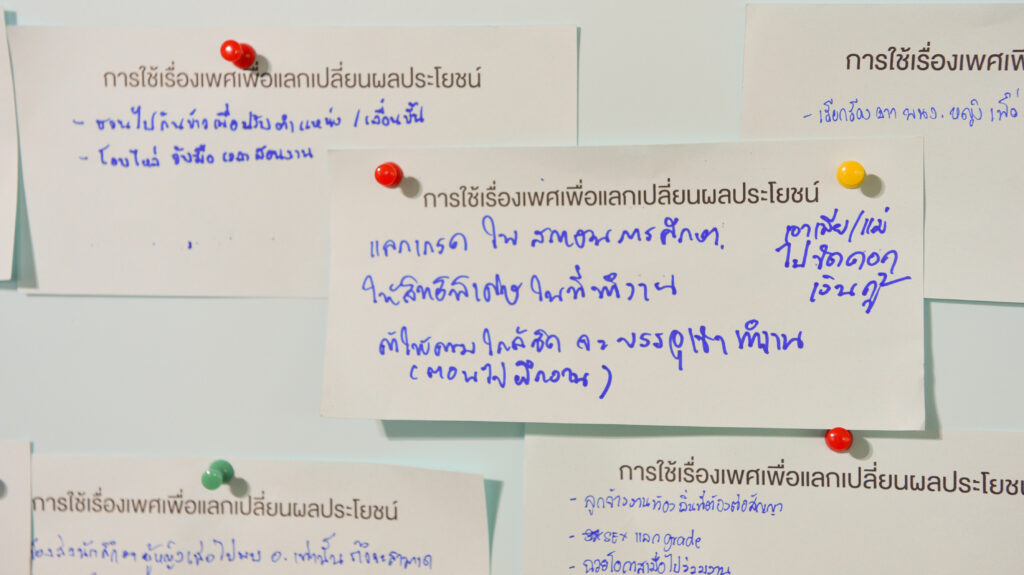 การใช้เรื่องเพศเพื่อแลกเปลี่ยนผลประโยชน์
- ชวนไปกินข้าวเพื่อปรับตำแหน่ง / เลื่อนขั้น
- โอบไหล่ จับมือ เวลาสอนงาน
การใช้เรื่องเพ
- เรียกร้องจาก พนง. หญิง เพื่อ
การใช้เรื่องเพศเพื่อแลกเปลี่ยนผลประโยชน์
แลกเกรด ใน สถาบันการศึกษา.
ให้สิทธิพิเศษ ในที่ทำงาน
ถ้าให้ความใกล้ชิด จะบรรจุเข้าทำงาน
(ตอนไปฝึกงาน)
เอาเมีย/แม่
ไปขัดดอก
เงินกู้
การใช้เรื่องเพศเพื่อแลกเปลี่ยนผลประโยชน์
ต้องส่งนักศึกษา ผู้หญิง ไปพบ อ. เท่านั้น ถึงจะสามารถ
การใช้เรื่องเพศเพื่อแลกเปลี่ยนผลประโยชน์
- ลูกจ้างงานท้องถิ่นที่ต้องต่อสัญญา
- SEX แลก grade
- ฉวยโอกาสเมื่อไปร่วมงาน